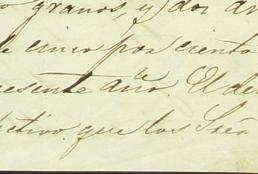 granos, y dos
de cinco por ciento
presente año. El de
ctivo que los Sres